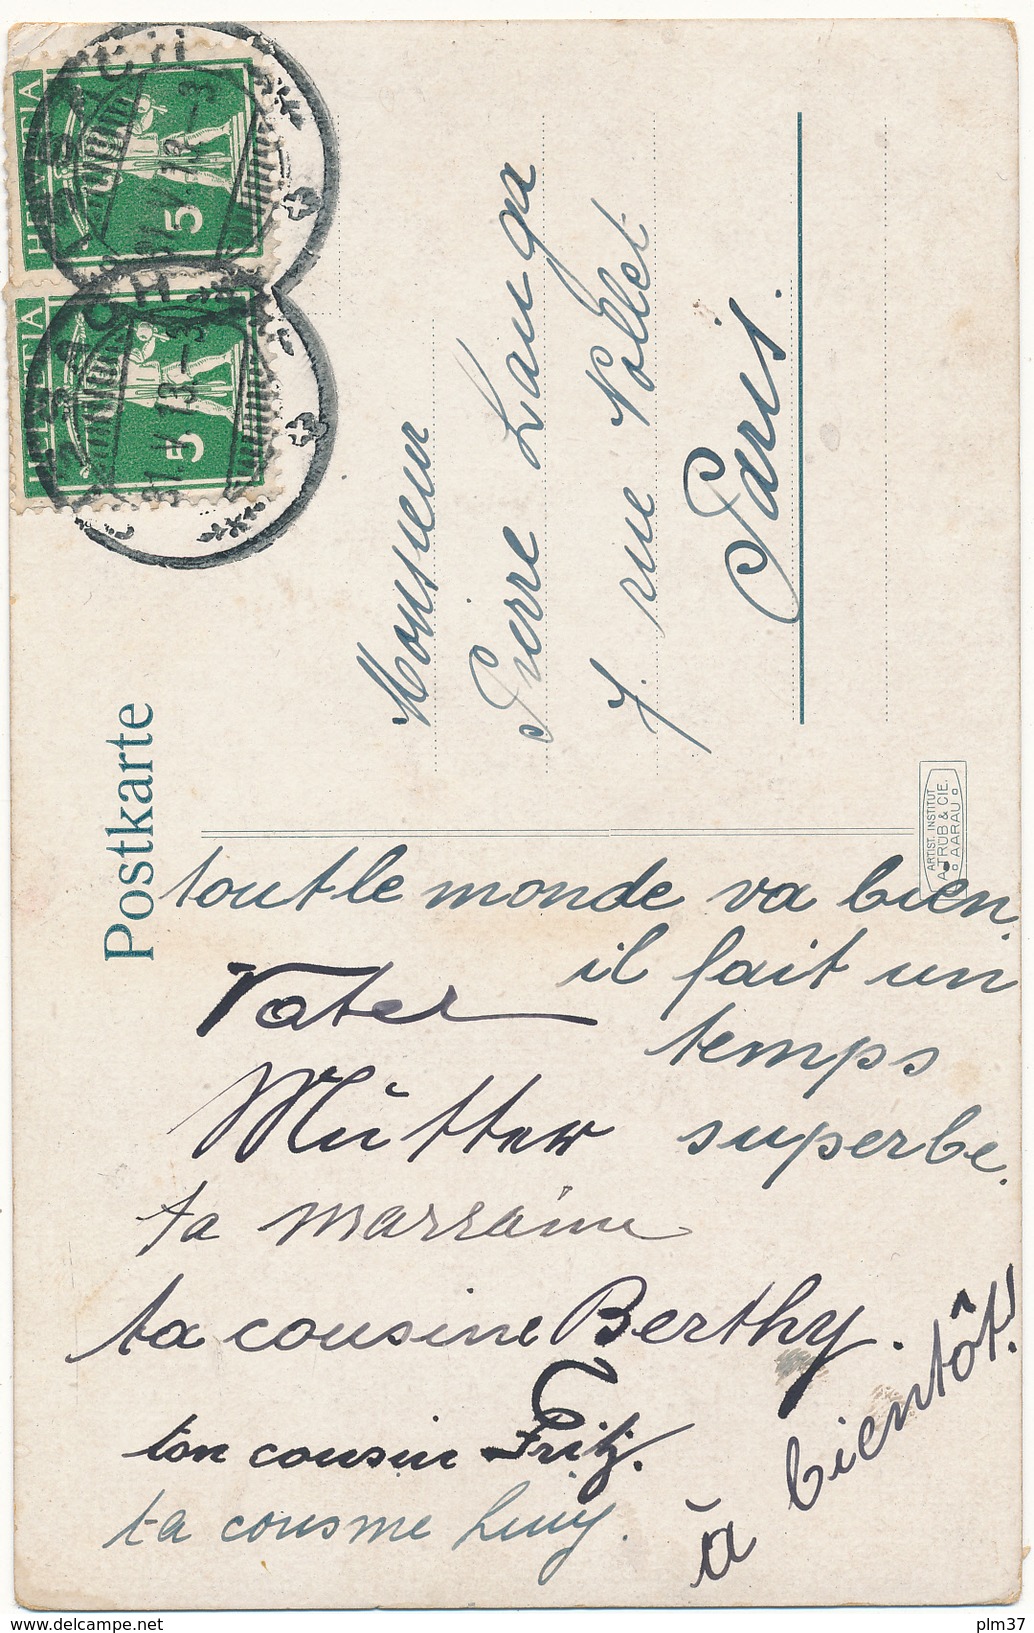 HELVETIA
5
HELVETIA
5
31.V.13-3
Postkarte
Monsieur
Pierre Lauga
7. rue Nollet
Paris.
ARTIST. INSTITUT
A. TRÜB & CIE.
AARAU
tout le monde va bien.
il fait un
temps
superbe.
Vater
Mütter
ta marraine
ta cousine Berthy.
ton cousin Fritz.
ta cousine
à bientôt!
plm37